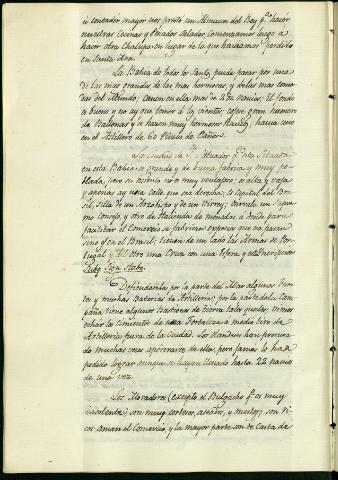 ò contador mayor nos prestò un Almacen del Rey pª hacér
nuestras Cocinas y Bolicaos Salados, Comenzamos luego a
hacer otra Chalupa en lugar de la que haviamos perdido
en Santa Ana.
La Bahia de todos los Santos puede pasar por una
de las mas grandes, de las mas hermosas, y de las mas como-
das del Mundo; Caven en ella mas de 2000 navios: El fondo
es bueno y no ay que temer à los vientos, cojese gran numero
de Ballenas y se hacen muy hermosos Navios; havia uno
en el Astillero de 60 Piezas de Cañon.
La Ciudad de Sn. Salvador qª està Situada
en esta Bahia es grande y de buena fabrica y muy po-
blada, pero su asiento no es muy ventajoso; es alta y vaxa
y apenas ay una calle que sea derecha; es Capital del Bra-
sil, silla de un Arzobispo y de un Virrey; tiene un su-
premo consejo, y otro de Hacienda de monedas, à donde para
facilitar el Comercio se fabrican expesos que no pasan
sino es en el Brasil; tienen de un lado las Armas de Por-
tugal y del otro una Cruz con una Esfera y esta Inscripcion
Subq. Sign. Stabo.
Defiendenla por la parte del Mar algunos Fuer-
tes y muchas Baterias de Artilleria; por la parte de la Cam-
paña tiene algunos Bastiones de tierra tales quales; vimos
echar los Cimientos de una Fortaleza à medio tiro de
Artilleria fuera de la Ciudad. Los Olandeses han procura-
do muchas veces apoderarse de ella; pero jamas lo han
podido lograr aunque se hayan llevado hasta 22 navios
de una vez.
Los Moradores (excepto el Bulgacho qª es muy
insolente) son muy corteses, aseados, y onestos; son ri-
cos aman el Comercio, y la mayor parte son de Casta de